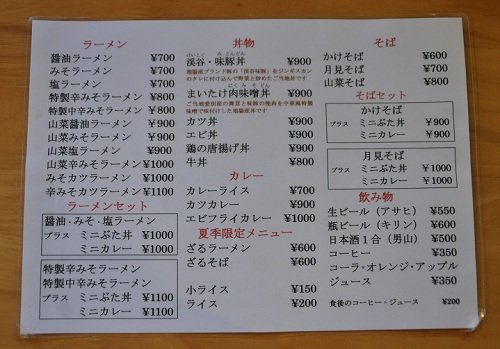 ラーメン
醤油ラーメン ¥700
みそラーメン ¥700
塩ラーメン ¥700
特製辛みそラーメン ¥800
特製中辛みそラーメン ¥800
山菜醤油ラーメン ¥900
山菜みそラーメン ¥900
山菜塩ラーメン ¥900
山菜辛みそラーメン ¥1000
みそカツラーメン ¥1000
辛みそカツラーメン ¥1100
ラーメンセット
醤油・みそ・塩ラーメン
プラス ミニぶた丼 ¥1000
ミニカレー ¥1000
特製辛みそラーメン
特製中辛みそラーメン
プラス ミニぶた丼 ¥1100
ミニカレー ¥1100
丼物
けいこく み とんどん
渓谷・味豚丼 ¥900
地場産ブランド豚の「渓谷味豚」をジンギスカン
のタレに付け込んで野菜と炒めたご当地丼です
にく み そ どん
まいたけ肉味噌丼 ¥900
ご当地愛別産の舞茸と味豚の挽肉を中華風特製
味噌で味付けした地場産丼です
カツ丼 ¥900
エビ丼 ¥900
鶏の唐揚げ丼 ¥900
牛丼 ¥800
カレー
カレーライス ¥700
カツカレー ¥900
エビフライカレー ¥1000
夏季限定メニュー
ざるラーメン ¥600
ざるそば ¥600
小ライス ¥150
ライス ¥200
そば
かけそば ¥600
月見そば ¥700
山菜そば ¥800
そばセット
かけそば
プラス ミニぶた丼 ¥900
ミニカレー ¥900
月見そば
プラス ミニぶた丼 ¥1000
ミニカレー ¥1000
飲み物
生ビール(アサヒ) ¥550
瓶ビール(キリン) ¥600
日本酒1合(男山) ¥500
コーヒー ¥350
コーラ・オレンジ・アップル
ジュース ¥350
食後のコーヒー・ジュース ¥200